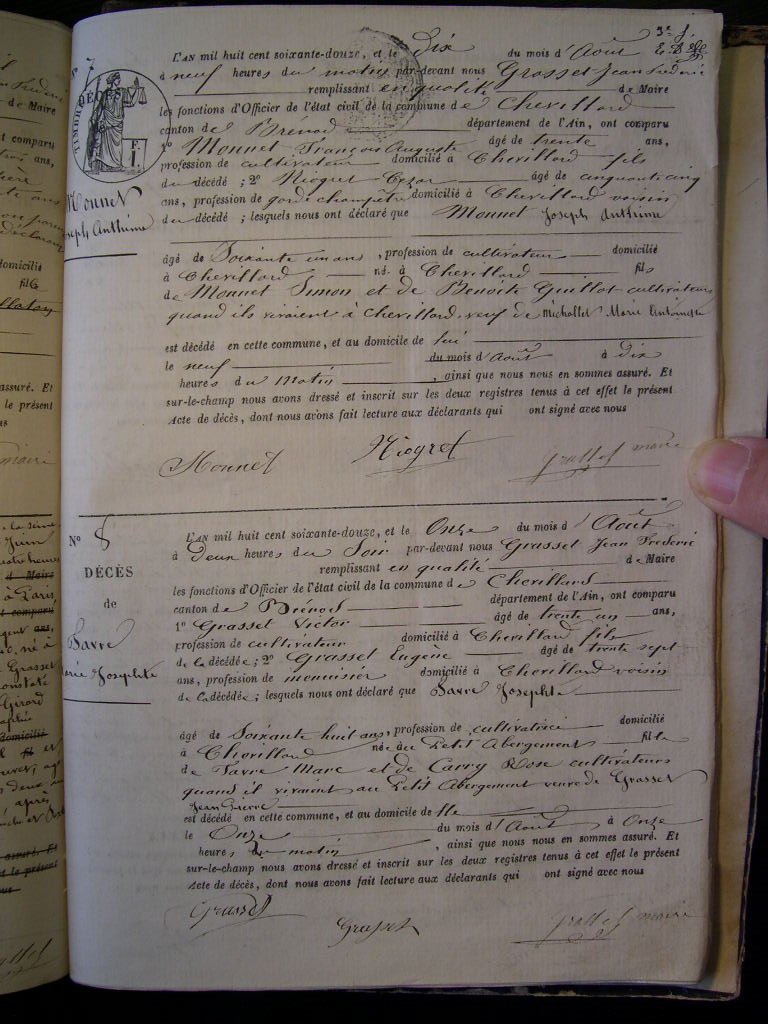 3e f.
N° 7
L'AN mil huit cent soixante-douze, et le dix du mois d'Août
à neuf heures du matin par-devant nous Grosset Jean Frédéric
remplissant en qualité de Maire
les fonctions d'Officier de l'état civil de la commune de Chevillard
canton de Brénod département de l'Ain, ont comparu
1° Monnet François Auguste âgé de trente ans,
profession de cultivateur domicilié à Chevillard fils
du décédé ; 2° Niogret Cézar âgé de cinquante cinq
ans, profession de garde champêtre domicilié à Chevillard voisin
du décédé ; lesquels nous ont déclaré que Monnet Joseph Anthime
TIMBRE DÉCÈS
F. 1.
Monnet
Joseph Anthime
âgé de Soixante un ans, profession de cultivateur domicilié
à Chevillard né à Chevillard fils
de Monnet Simon et de Benoite Guillot cultivateurs
quand ils vivaient à Chevillard veuf de Michallet Marie Antoinette
est décédé en cette commune, et au domicile de lui
le neuf du mois d'Août à dix
heures du matin, ainsi que nous nous en sommes assuré. Et
sur-le-champ nous avons dressé et inscrit sur les deux registres tenus à cet effet le présent
Acte de décès, dont nous avons fait lecture aux déclarants qui ont signé avec nous
Monnet Niogret Grasset maire
N° 8
DÉCÈS
de
Savre
Marie Josephte
L'AN mil huit cent soixante-douze, et le Onze du mois d'Août
à deux heures du Soir par-devant nous Grasset Jean Frederic
remplissant en qualité de Maire
les fonctions d'Officier de l'état civil de la commune de Chevillard
canton de Brénod département de l'Ain, ont comparu
1° Grasset Victor âgé de trente un ans,
profession de cultivateur domicilié à Chevillard fils
de la décédée ; 2° Grasset Eugène âgé de trente sept
ans, profession de menuisier domicilié à Chevillard voisin
de la décédée ; lesquels nous ont déclaré que Savre Josephte
âgé de Soixante huit ans, profession de cultivatrice domicilié
à Chevillard née au Petit Abergement fille
de Savre Marc et de Carry Rose cultivateurs
quand il vivaient au Petit Abergement veuve de Grasset
Jean Pierre
est décédé en cette commune, et au domicile de
le Onze du mois d'Août à Onze
heures du matin, ainsi que nous nous en sommes assuré. Et
sur-le-champ nous avons dressé et inscrit sur les deux registres tenus à cet effet le présent
Acte de décès, dont nous avons fait lecture aux déclarants qui ont signé avec nous
Grasset
Grasset
Grasset maire